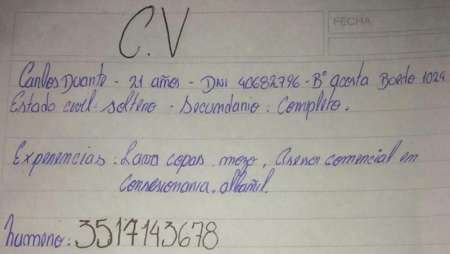 FECHA
C.V
Carlos Duarte - 21 años - DNI 40682796 - B° acosta Boeto 1024
Estado civil: soltero - Secundario: Completo.
Experiencias: Lava copas. mozo, Asesor comercial em
Consesionaria. albañil.
humero: 3517143678